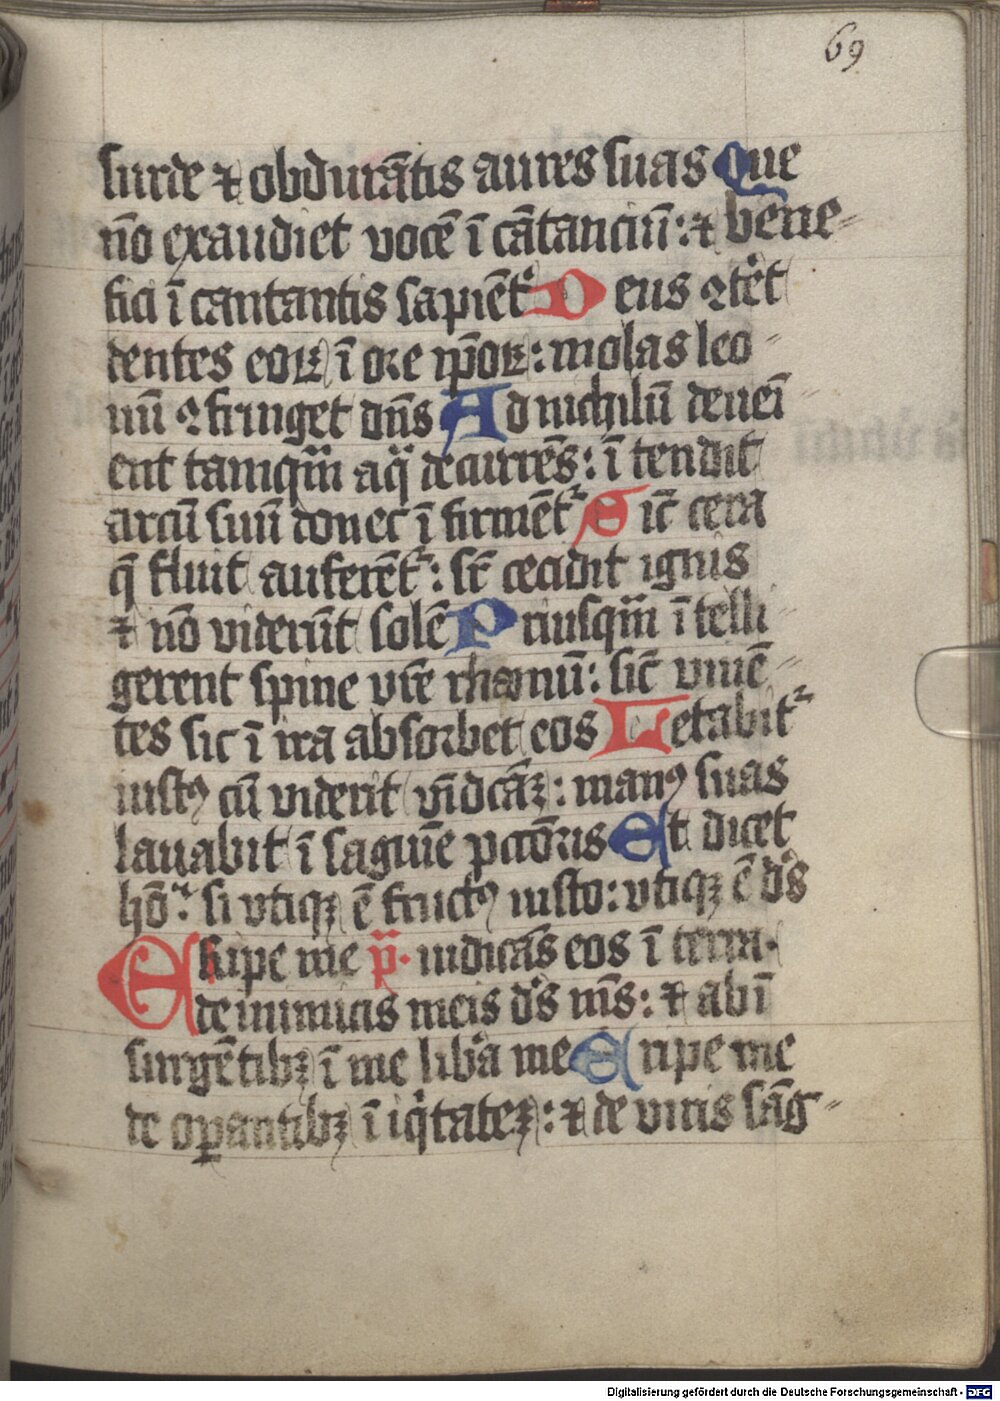 69
surde ⁊ obdurãtis aures suas Que
nõ exaudiet vocē ī cãtanciũ: ⁊ vene-
fici ī cantantis sapiēt᷑ Deus ꝯt̾et
dentes eoꝝ ī ore ip̄oꝝ: molas leo-
nũ ꝯfringet dñs Ad nichilũ deueī-
ent tamqm̄ aq̈ decurrēs: ī tendit
arcũ suũ donec ī firmēt᷑ Sic̄ cera
q̄ fluit auferēt᷑: sr̄ cecidit ignis
⁊ nõ viderũt solē Priusqm̄ ītelli-
gerent spine vr̄e rhamnũ: sic̄ viuē-
tes sic ī ira absorbet eos Letabit᷑
iustꝰ cũ viderit vīdcãꝫ: manꝰ suas
lauabit ī sāguīe pctõris Et dicet
hõ: si vtiqꝫ ē fructꝰ iusto: vtiqꝫ ē d̾s
Eripe me p̄. iudicãs eos ī terra.
de inimicis meis d̾s m̄s: ⁊ ab ī
surgētibꝫ ī me lib̾a me Eripe me
de oꝑantibꝫ ī iq̇tateꝫ: ⁊ de viris sãg-
Digitalisierung gefördert durch die Deutsche Forschungsgemeinschaft - DFG